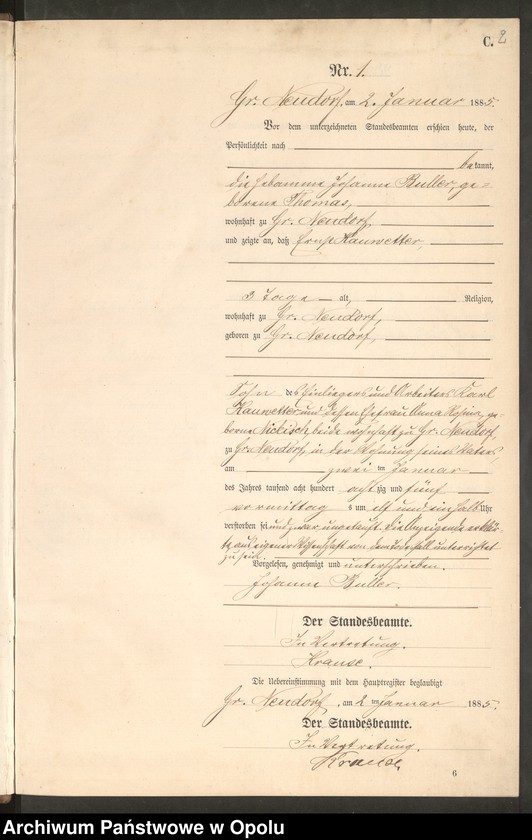 C. 2
Nr. 1.
Gr. Neudorf, am 2. Januar 1885.
Vor dem unterzeichneten Standesbeamten erschien heute, der
Persönlichkeit nach
bekannt,
die Hebamme Johanne Buller, ge-
borene Thomas,
wohnhaft zu Gr. Neudorf,
und zeigte an, daß Ernst Kauwetter,
3 Tage alt, Religion,
wohnhaft zu Gr. Neudorf,
geboren zu Gr. Neudorf,
Sohn des Einliegers und Arbeiters Karl
Kauwetter und dessen Ehefrau Anna Rosina, ge-
borene Nickisch, beide wohnhaft zu Gr. Neudorf,
zu Gr. Neudorf, in der Wohnung seines Vaters
am zwei ten Januar
des Jahres tausend acht hundert achtzig und fünf
vormittags um elf und einhalb Uhr
verstorben sei und zwar ungetauft. Die Anzeigende erklär-
te, aus eigener Wissenschaft von dem Todesfall unterrichtet
zu sein.
Vorgelesen, genehmigt und unterschrieben.
Johanne Buller.
Der Standesbeamte.
In Vertretung.
Krause.
Die Uebereinstimmung mit dem Hauptregister beglaubigt
Gr. Neudorf, am 2 ten Januar 1885.
Der Standesbeamte.
In Vertretung.
Krause.
6
Archiwum Państwowe w Opolu